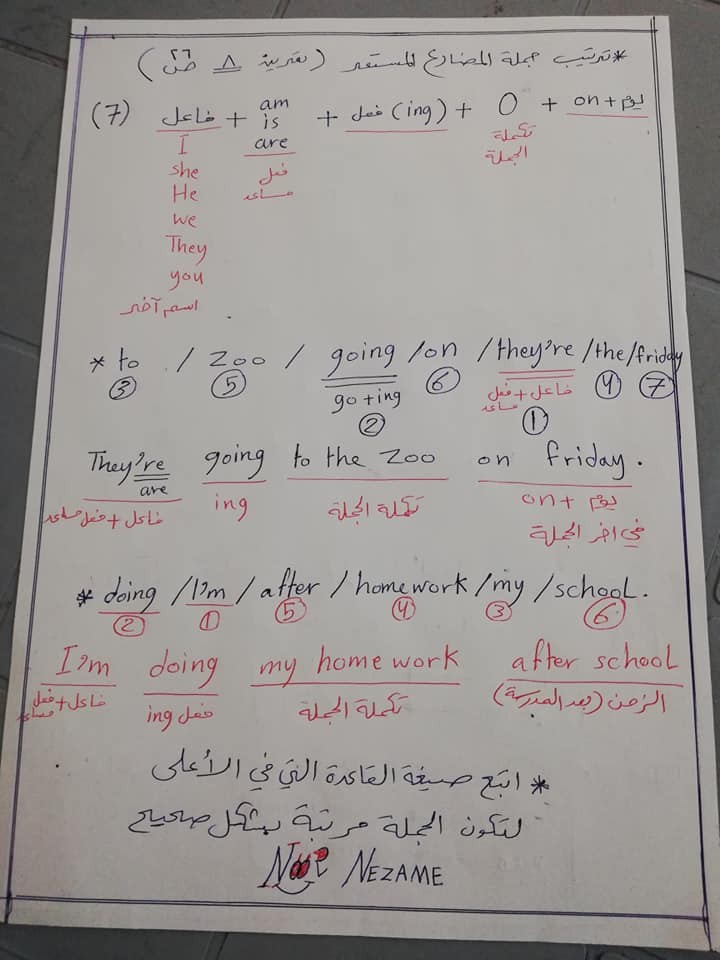 * ترتيب جملة المضارع المستمر (تمرين ٨ ص ٢٦)
(7) فاعل + am is are + فعل (ing) + O + on + يوم
I
she
He
we
They
you
اسم آخر
فعل مساعد
تكملة الجملة
* to / Zoo / going / on / they're / the / friday
3 5 go+ing 6 فاعل + فعل مساعد 4 7
2 1
They're going to the Zoo on friday.
are ing تكملة الجملة on + يوم
فاعل + فعل مساعد في اخر الجملة
* doing / I'm / after / homework / my / school.
2 1 5 4 3 6
I'm doing my homework after school
فاعل + فعل مساعد ing فعل تكملة الجملة الزمن (بعد المدرسة)
* اتبع صيغة القاعدة التي في الأعلى
لتكون الجملة مرتبة بشكل صحيح
Noor NEZAME